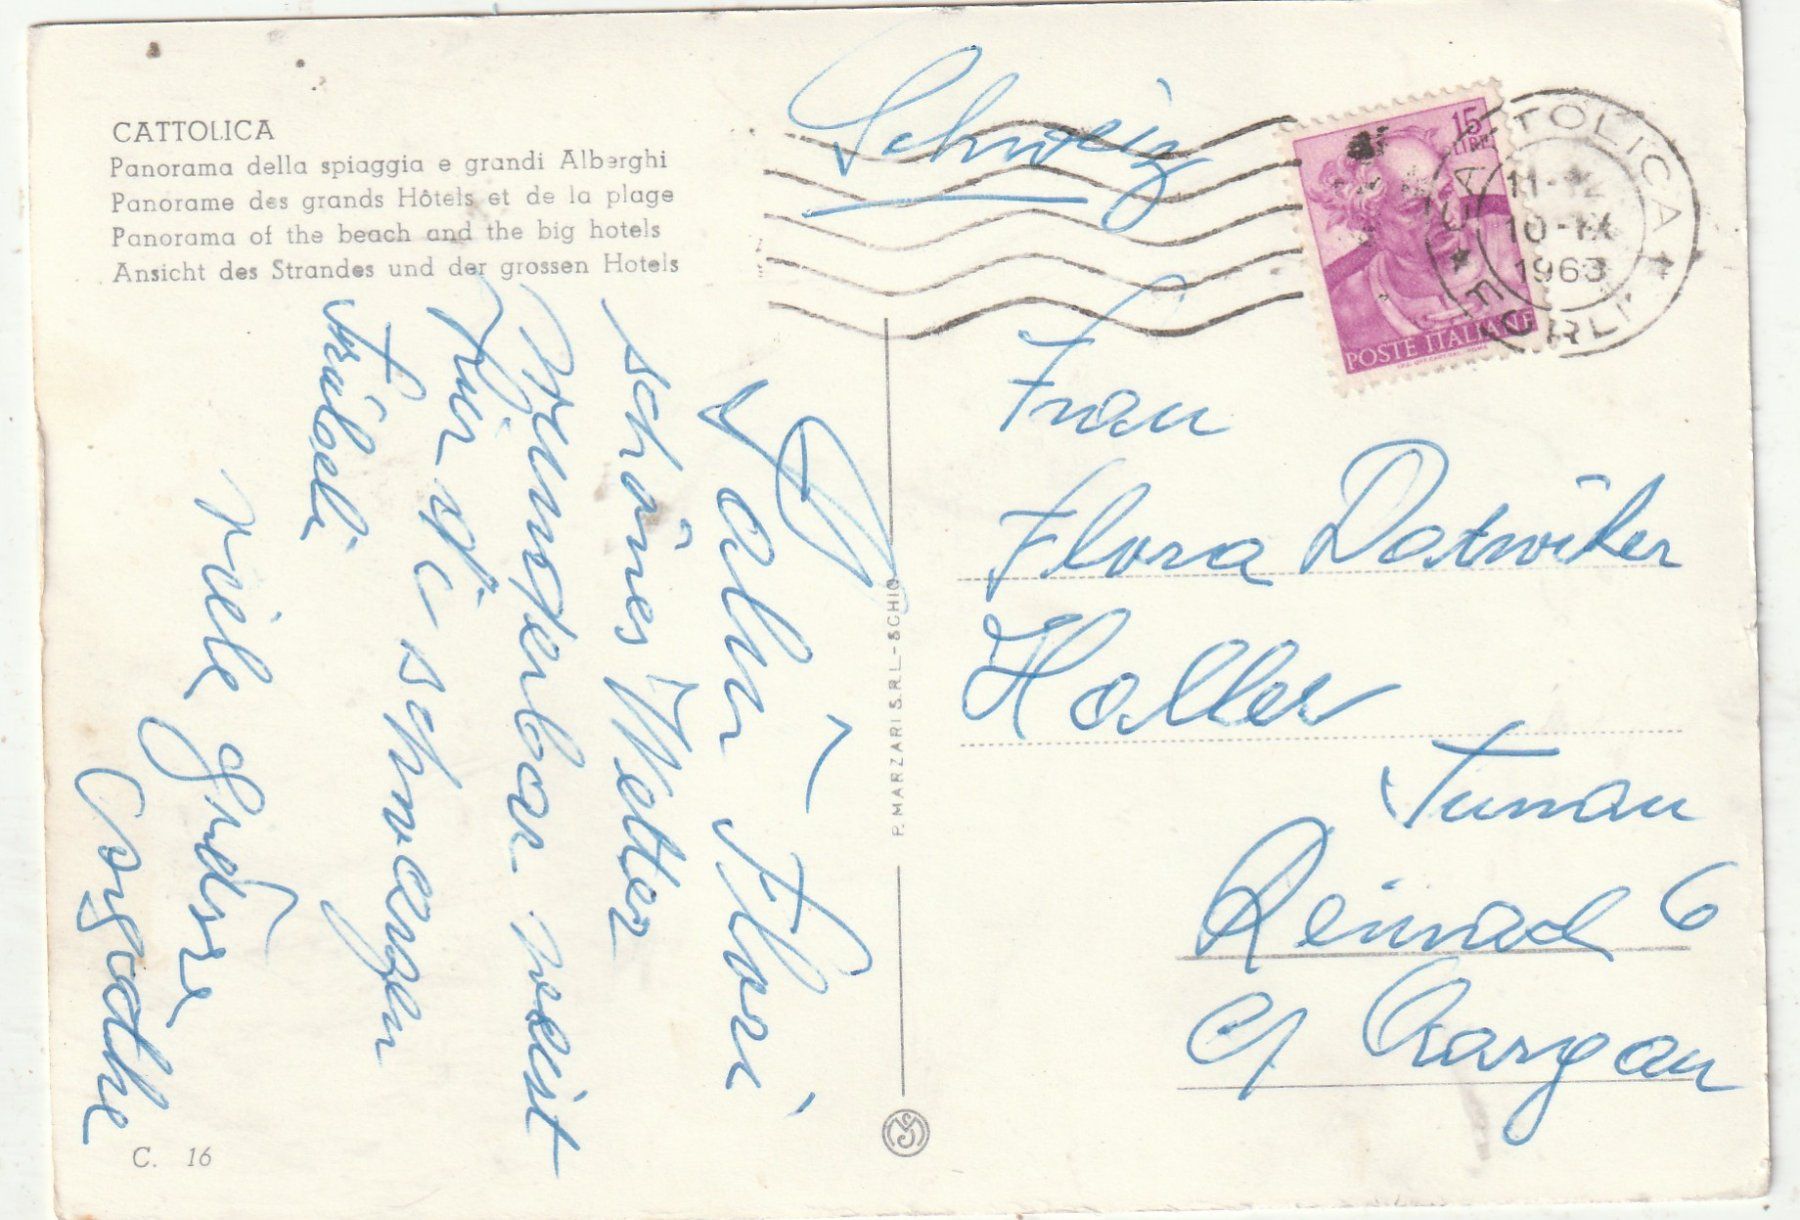 CATTOLICA
Panorama della spiaggia e grandi Alberghi
Panorame des grands Hôtels et de la plage
Panorama of the beach and the big hotels
Ansicht des Strandes und der grossen Hotels
Schweiz
15
LIRE
POSTE ITALIANE
CATTOLICA
11-12
10-IX
1963
FORLI
Frau
Flora Datwiler
Haller
Tunau
Reinach 6
Aargau
Flori
schönes Wetter
wunderbar weit
für
schwarzen
Träubeli
viele Grüsse
P. MARZARI S.R.L.-SCHIO
C. 16